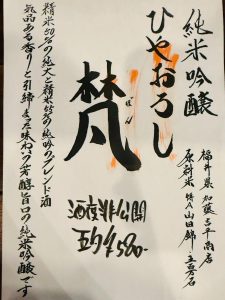 純米吟醸
ひやおろし
福井県 加藤吉平商店
原料米 特A山田錦 五百万石
梵
ぼん
酒度非公開
五勺 ¥580-
精米50%の純大と精米55%の純吟のブレンド酒
気品ある香りと引締まった味わいの芳醇旨口の純米吟醸です